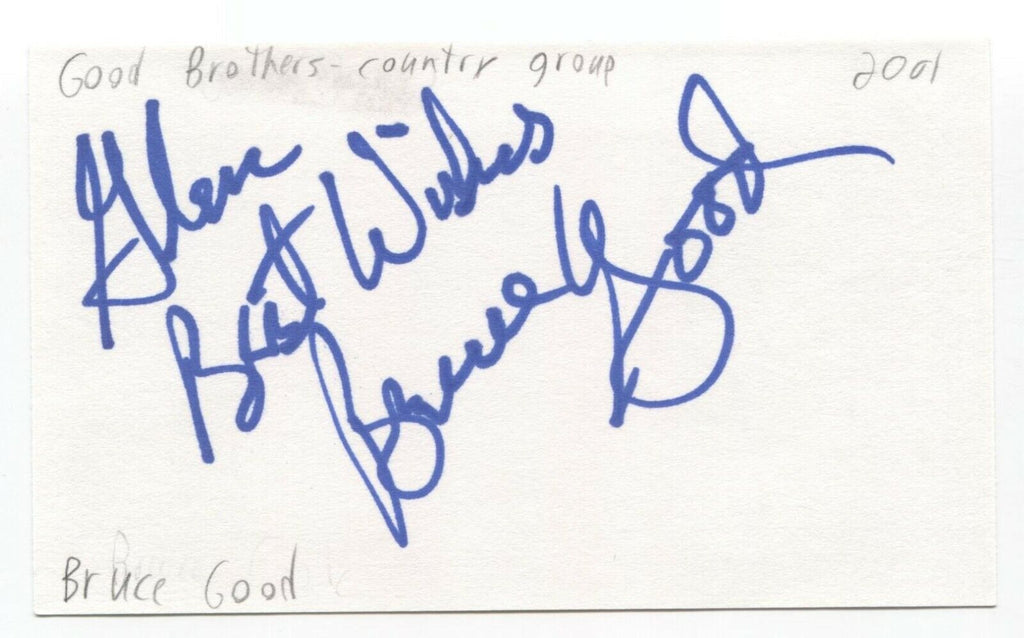 Good Brothers - country group 2001
Glen
Best Wishes
Bruce Good
Bruce Good